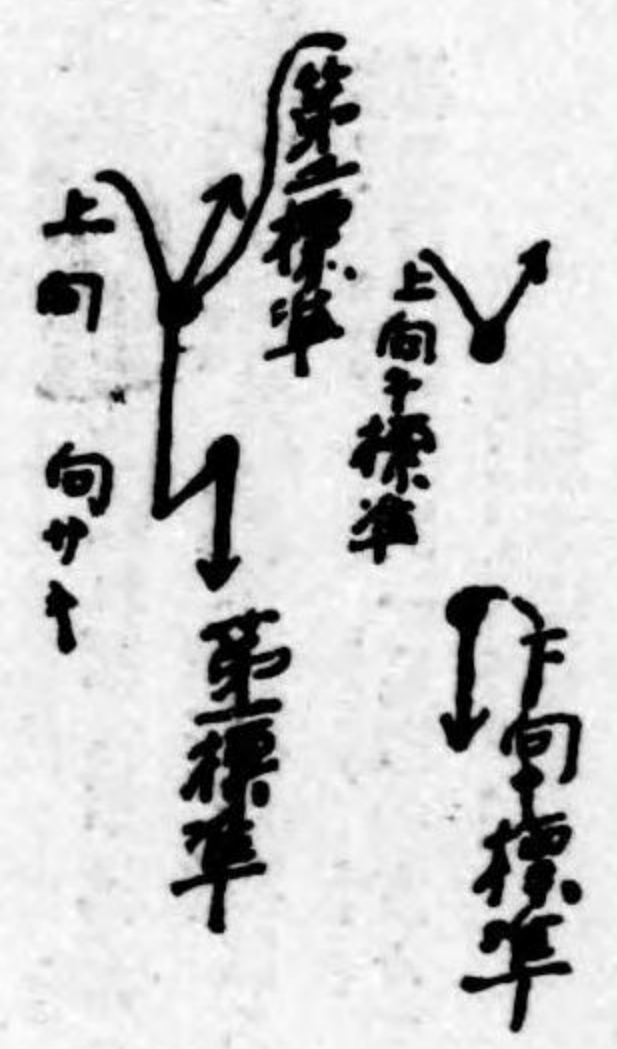 下向キ標準
上向キ標準
第二標準
第一標準
上向
向サキ